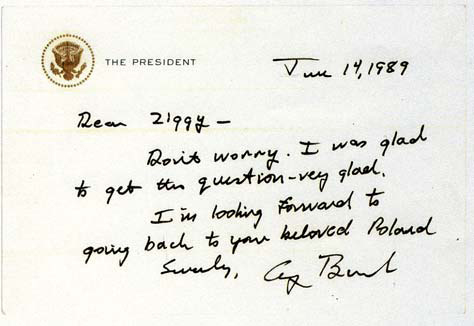 THE PRESIDENT
June 14, 1989
Dear Ziggy —
Don't worry. I was glad
to get the question - very glad.
I'm looking forward to
going back to your beloved Poland
Sincerely, Gg Bush